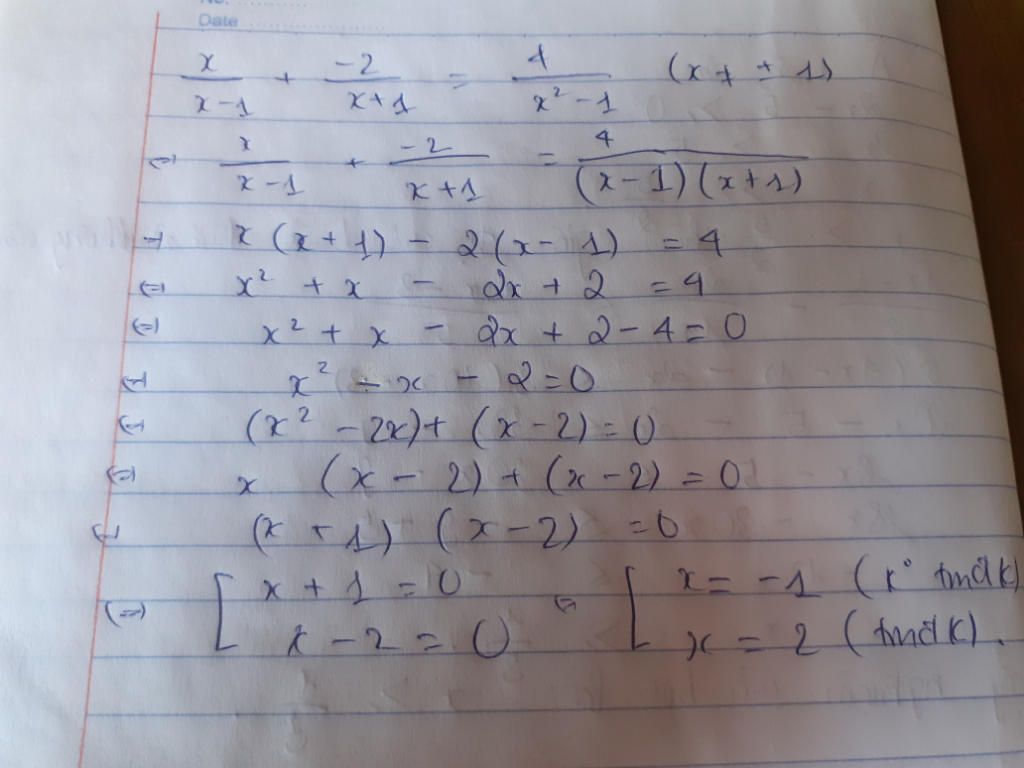 No.
Date
x/(x-1) + -2/(x+1) = 4/(x² - 1) (x ≠ ± 1)
⇔ x/(x-1) + -2/(x+1) = 4/((x-1)(x+1))
⇔ x(x+1) - 2(x-1) = 4
⇔ x² + x - 2x + 2 = 4
⇔ x² + x - 2x + 2 - 4 = 0
⇔ x² - x - 2 = 0
⇔ (x² - 2x) + (x - 2) = 0
⇔ x (x - 2) + (x - 2) = 0
⇔ (x + 1) (x - 2) = 0
⇔ [ x + 1 = 0 ⇔ [ x = -1 (k° tmđk)
x - 2 = 0 x = 2 (tmđk).